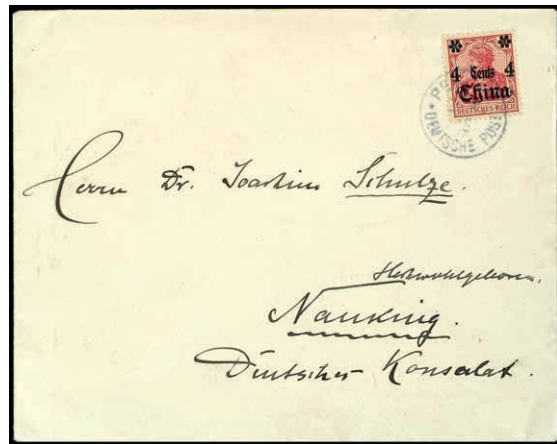 4 Cents 4
China
DEUTSCHES REICH
DEUTSCHE POST
Herrn Dr. Joachim Schulze.
Hochwohlgeboren.
Nanking.
Deutsches Konsulat.